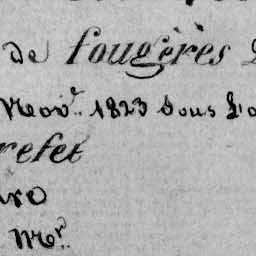 de fougères
Nov.r 1823 sous l'o
refet
Mr.